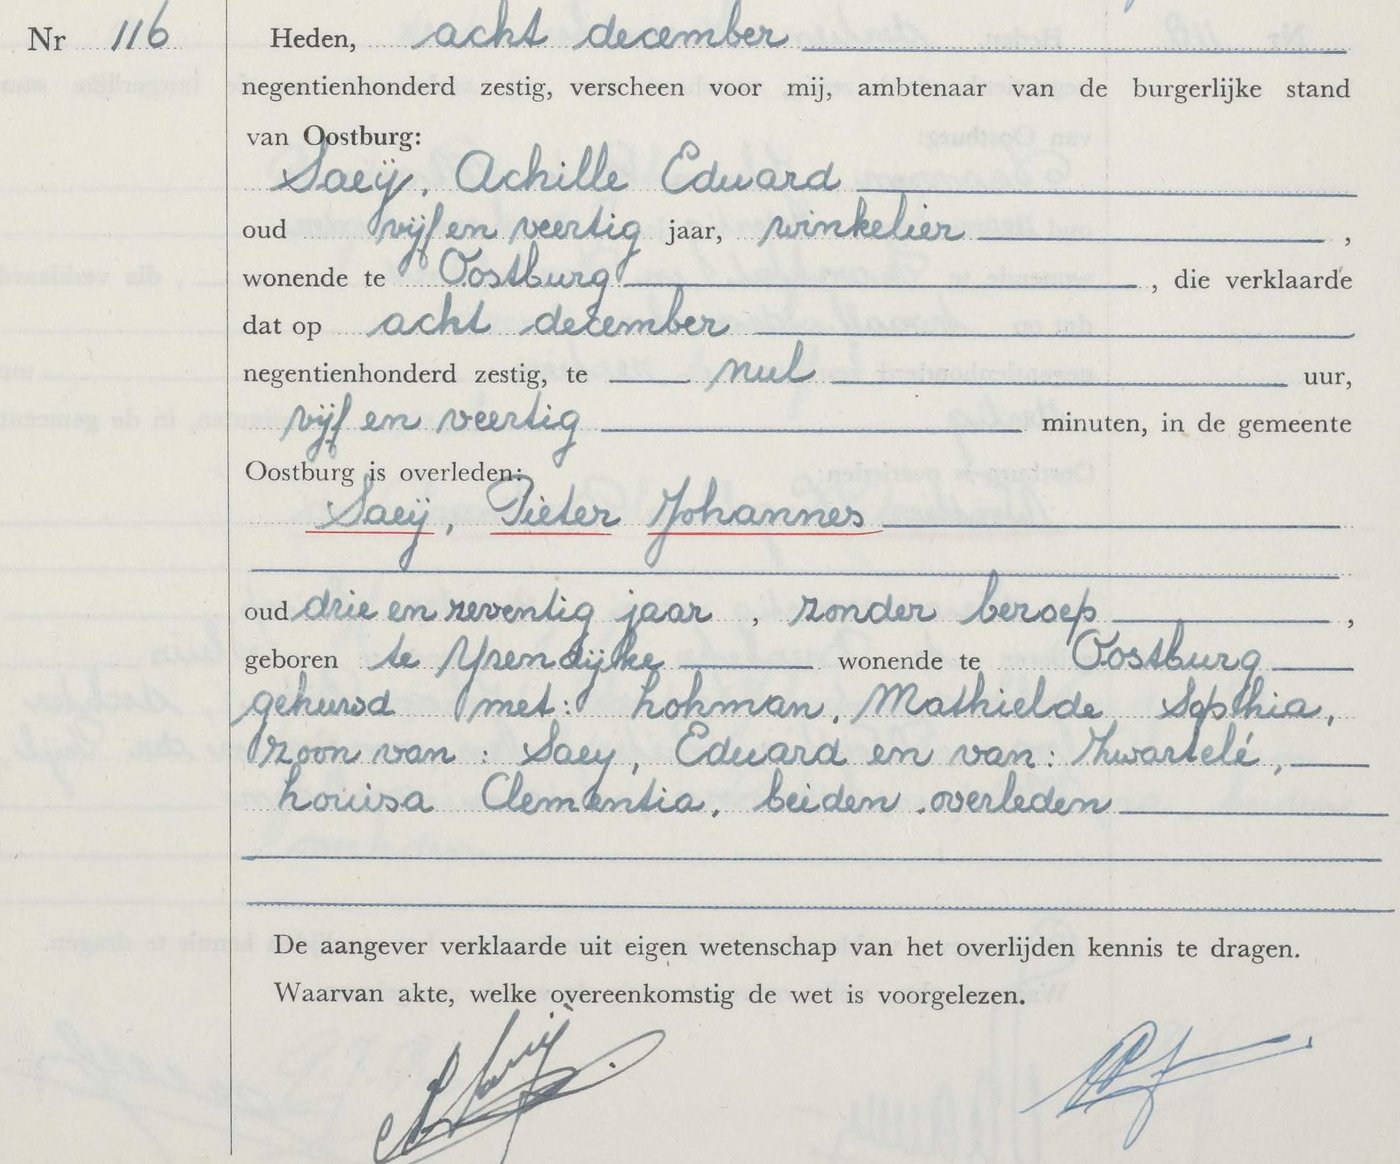 Nr 116 Heden, acht december
negentienhonderd zestig, verscheen voor mij, ambtenaar van de burgerlijke stand
van Oostburg:
Saeÿ, Achille Eduard
oud vijf en veertig jaar, winkelier ,
wonende te Oostburg , die verklaarde
dat op acht december
negentienhonderd zestig, te nul uur,
vijf en veertig minuten, in de gemeente
Oostburg is overleden:
Saeÿ, Pieter Johannes
oud drie en zeventig jaar , zonder beroep ,
geboren te Yzendijke wonende te Oostburg
gehuwd met: Lohman, Mathielde Sophia,
zoon van : Saey, Eduard en van: Zwartelé,
Louisa Clementia, beiden overleden
De aangever verklaarde uit eigen wetenschap van het overlijden kennis te dragen.
Waarvan akte, welke overeenkomstig de wet is voorgelezen.